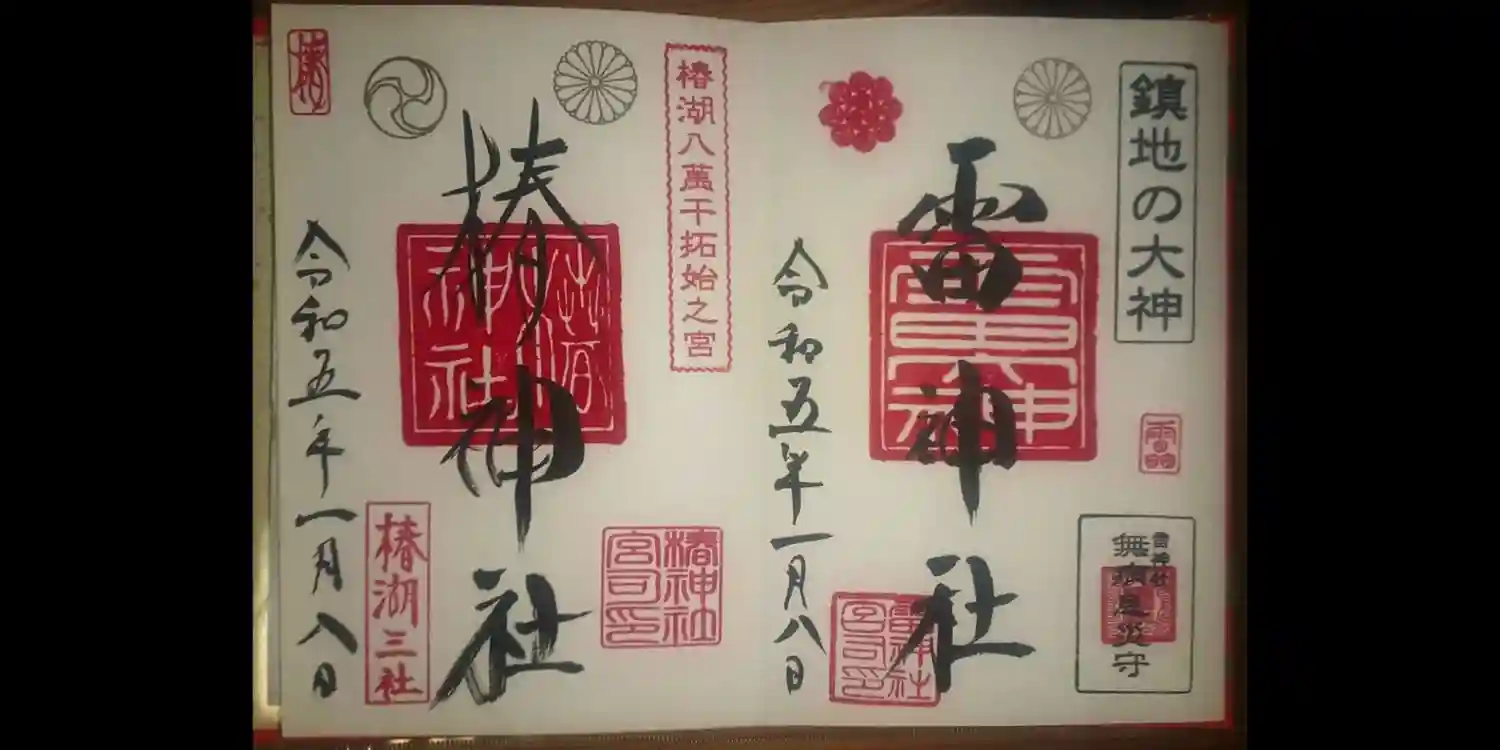 鎮地の大神
雷神社
雷神社
無病息災守
雷神社
宮司印
令和五年一月八日
椿湖八萬干拓始之宮
椿神社
椿神社
椿神社
宮司印
椿湖三社
令和五年一月八日